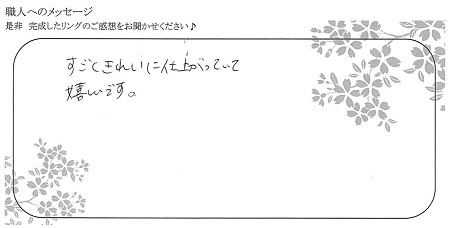 職人へのメッセージ
是非 完成したリングのご感想をお聞かせください♪
すごくきれいに仕上がっていて
嬉しいです。